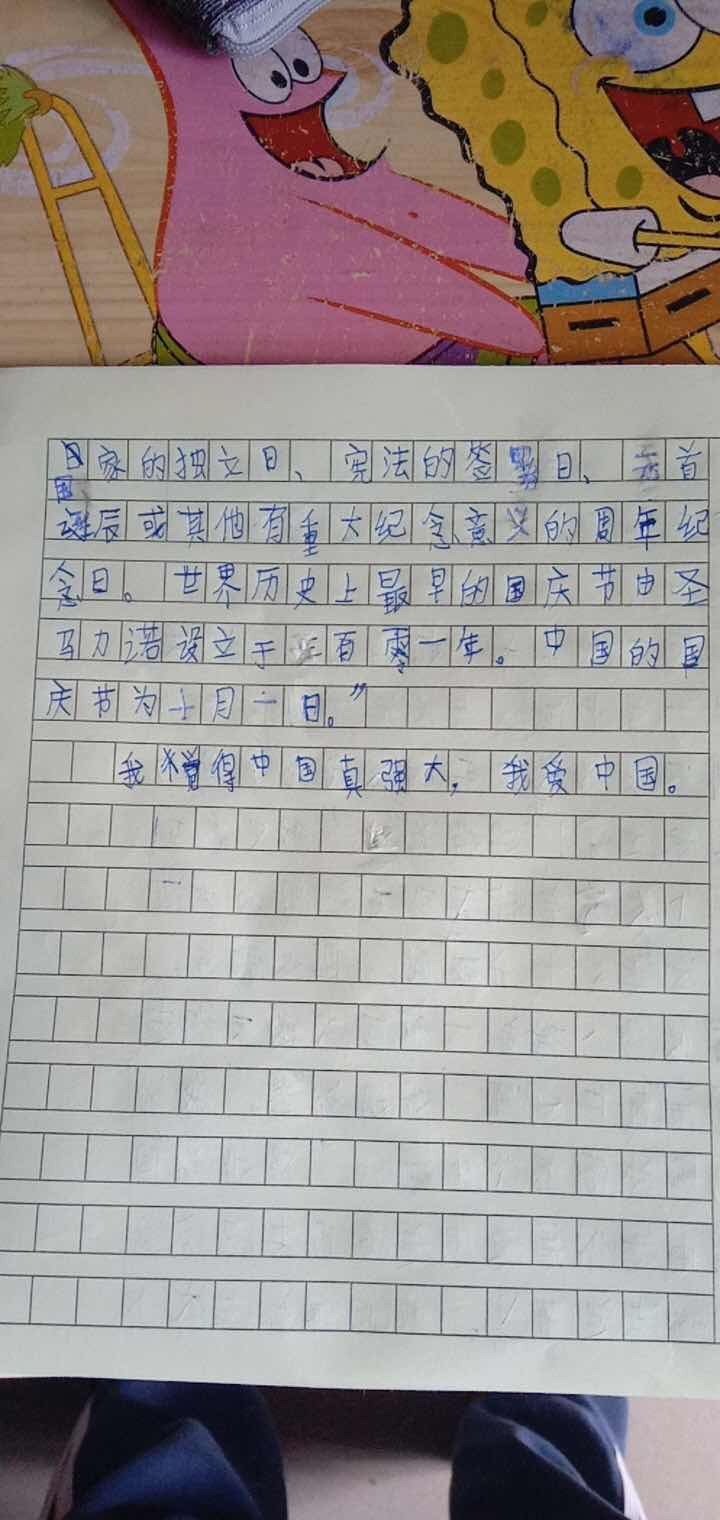 国家的独立日、宪法的签署日、元首
诞辰或其他有重大纪念意义的周年纪
念日。世界历史上最早的国庆节由圣
马力诺设立于三百零一年。中国的国
庆节为十月一日。”
我觉得中国真强大,我爱中国。